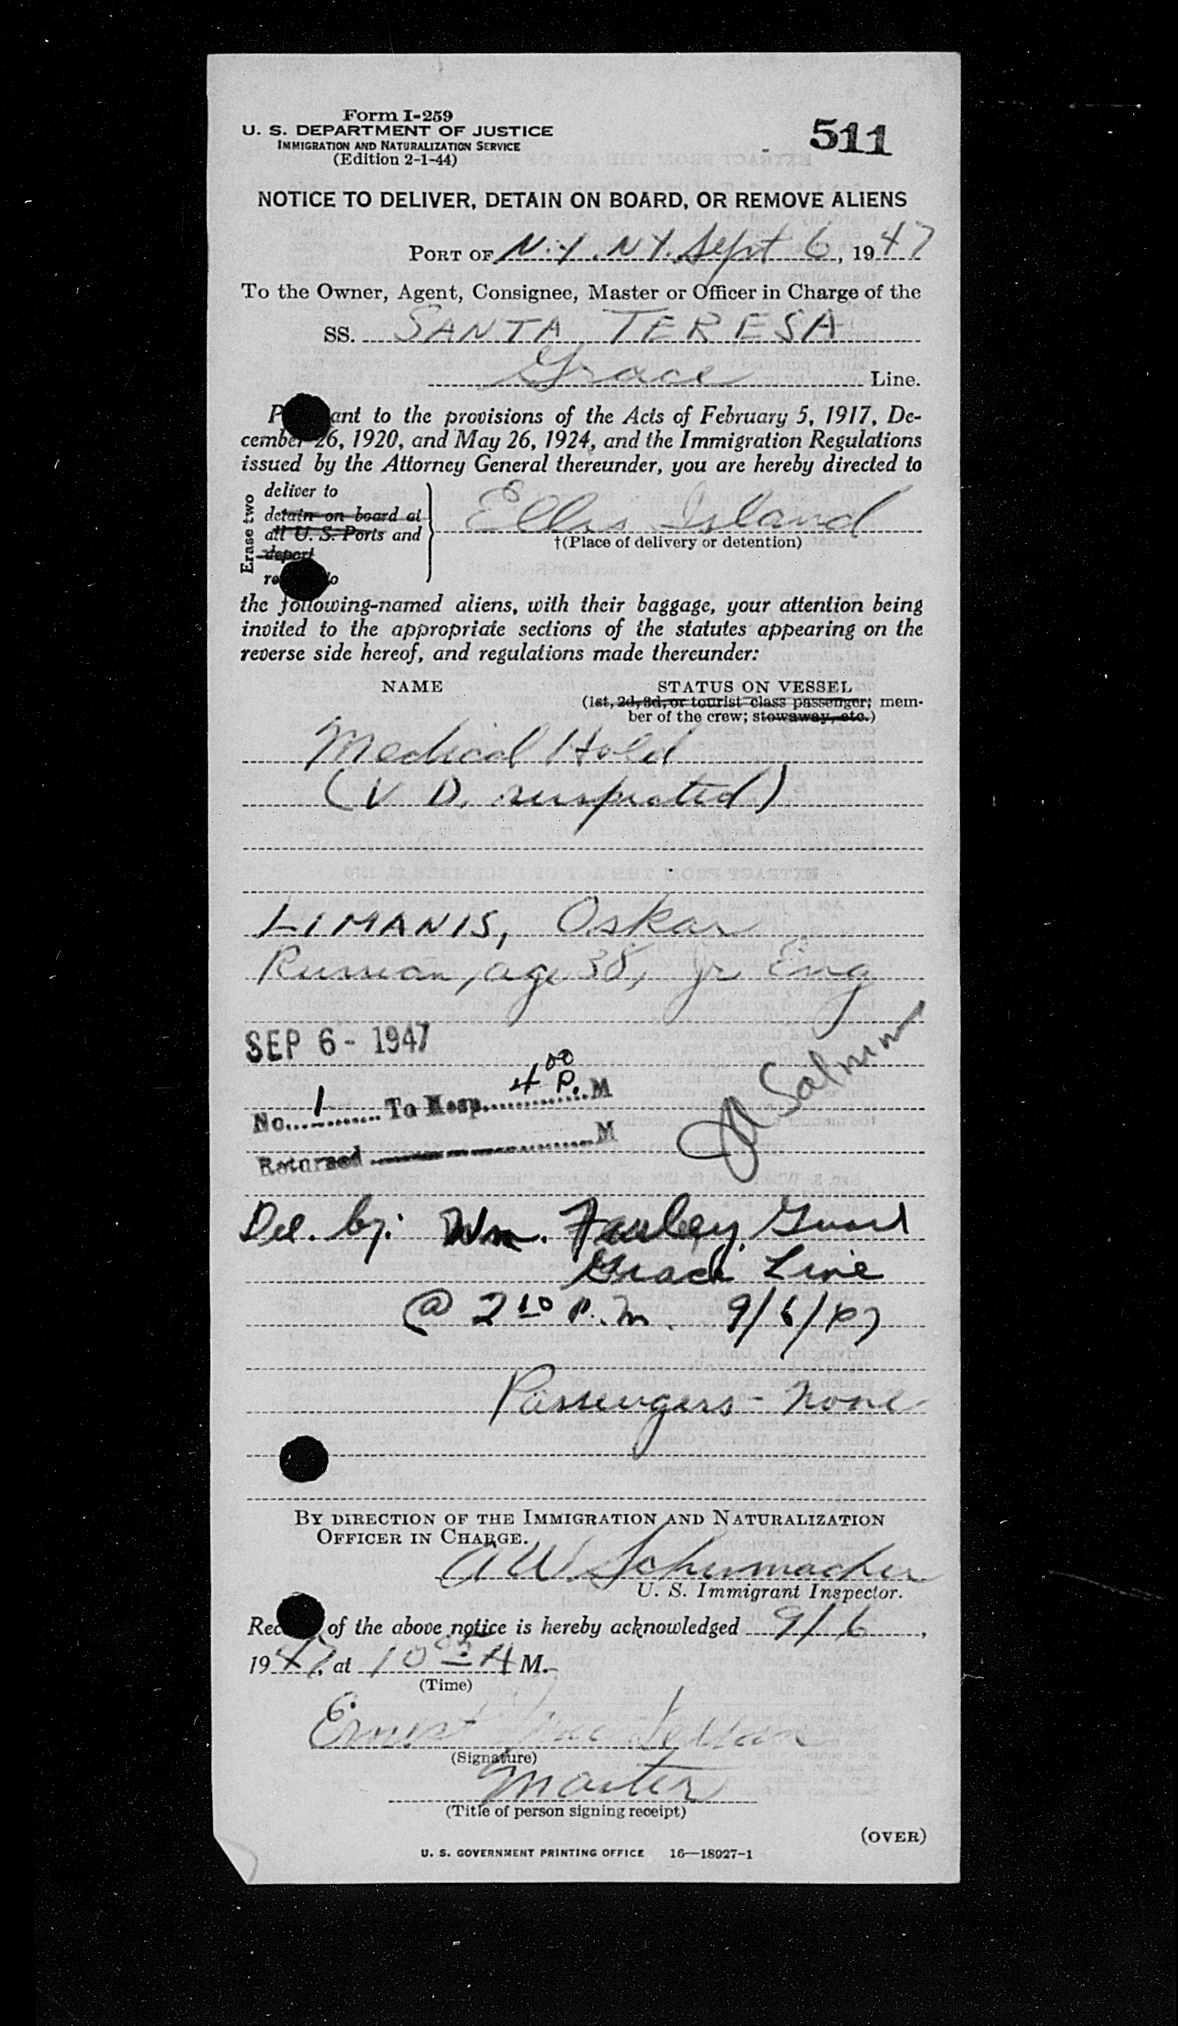 Form I-259
U. S. DEPARTMENT OF JUSTICE
IMMIGRATION AND NATURALIZATION SERVICE
(Edition 2-1-44)
511
NOTICE TO DELIVER, DETAIN ON BOARD, OR REMOVE ALIENS
PORT OF N.Y. N.Y. Sept 6, 1947
To the Owner, Agent, Consignee, Master or Officer in Charge of the
SS. SANTA TERESA
Grace Line.
ant to the provisions of the Acts of February 5, 1917, De-
cember 26, 1920, and May 26, 1924, and the Immigration Regulations
issued by the Attorney General thereunder, you are hereby directed to
Erase two
deliver to
detain on board at
all U. S. Ports and
deport
Ellis Island
†(Place of delivery or detention)
the following-named aliens, with their baggage, your attention being
invited to the appropriate sections of the statutes appearing on the
reverse side hereof, and regulations made thereunder:
NAME
STATUS ON VESSEL
(1st, 2d, 3d, or tourist class passenger; mem-
ber of the crew; stowaway, etc.)
Medical Hold
(V D. suspected)
LIMANIS, Oskar
Russian, age 38, Jr Eng
SEP 6 - 1947
No. 1 To Hosp. 4 00 P. M
Returned M
Del. by: Wm. Farley Guard
Grace Line
@ 2 10 P.M. 9/6/47
Passengers - None
BY DIRECTION OF THE IMMIGRATION AND NATURALIZATION
OFFICER IN CHARGE.
A W Schumacher
U. S. Immigrant Inspector.
of the above notice is hereby acknowledged 9/6,
1947, at 10 05 A M.
(Time)
Ernest
(Signature)
Master
(Title of person signing receipt)
(OVER)
U. S. GOVERNMENT PRINTING OFFICE 16—18927-1